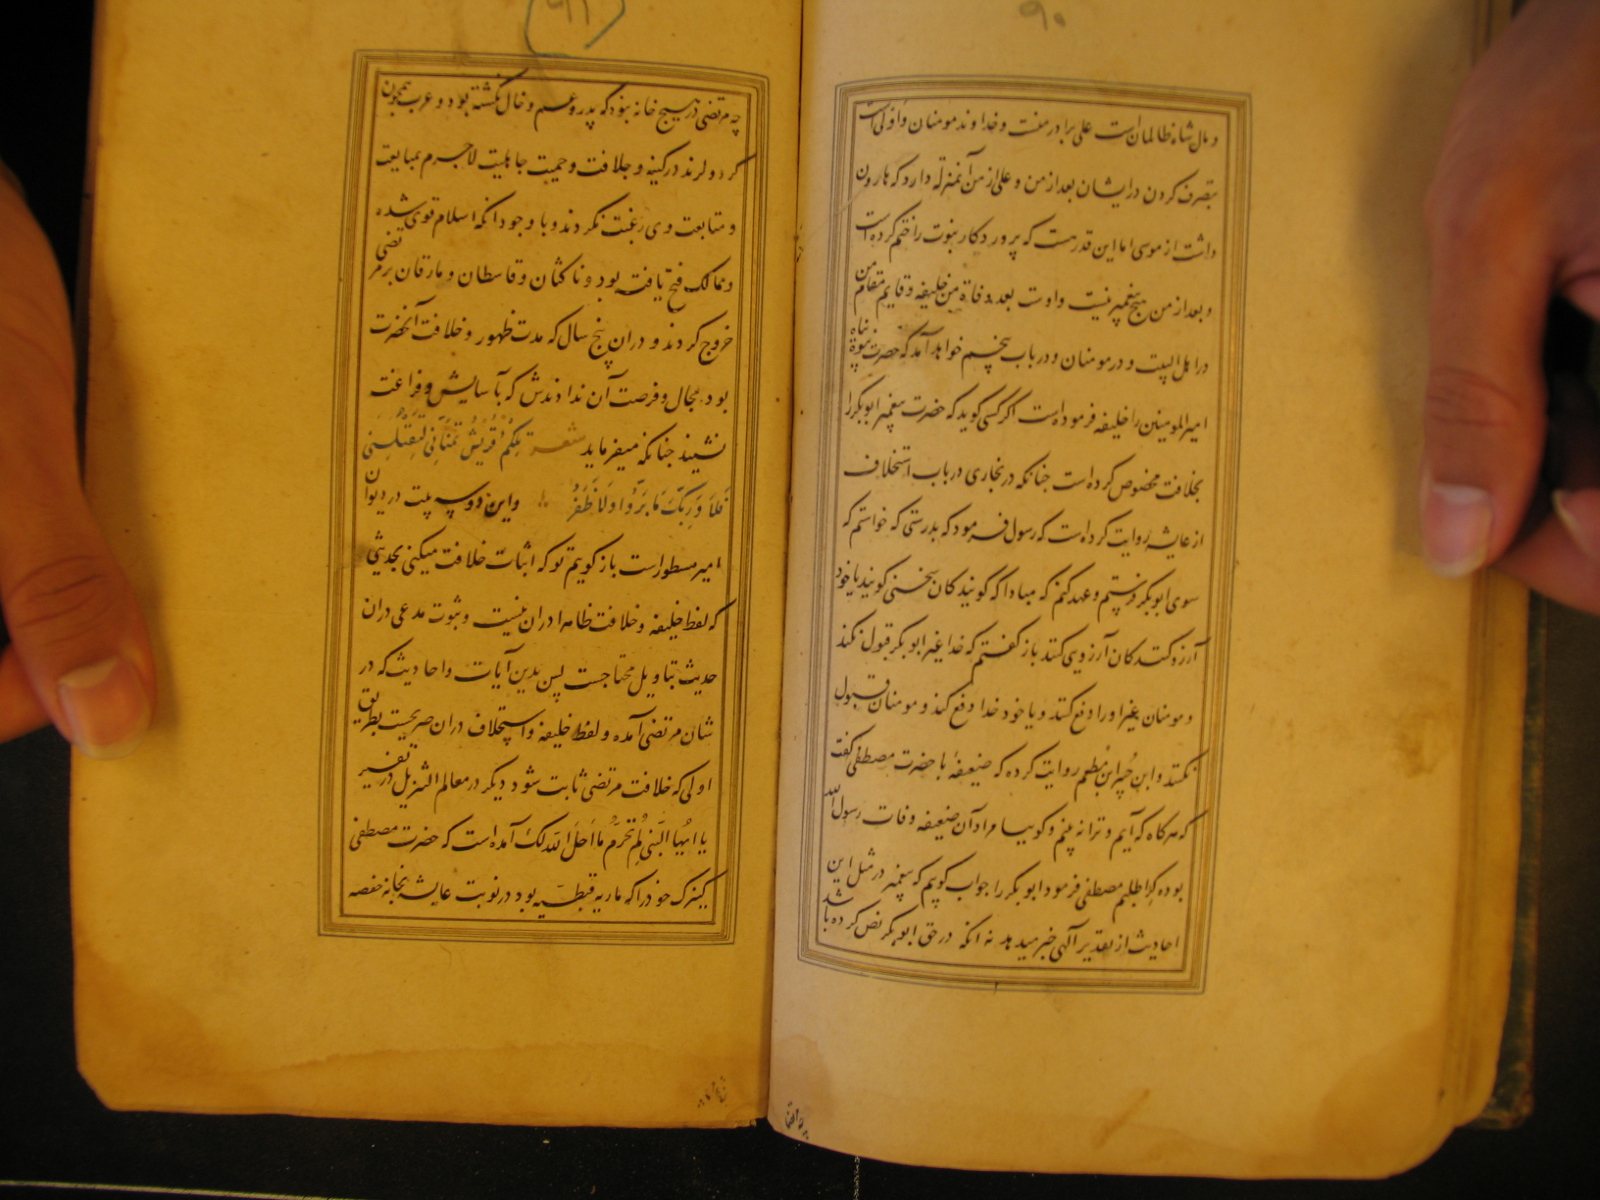 ۹۰
و مال شاه ظالمان است علی برادر منست و خداوند مومنان و اولی است
بتصرف کردن در ایشان بعد از من و علی از من آنمنزله دارد که هارون
داشت از موسی اما این قدر هست که پروردکار نبوت را ختم کرده است
و بعد از من هیچ پیغمبر نیست و اوست بعد وفاة من خلیفه و قایم مقام من
در اهل البیت و در مومنان و در باب پنجم خواهد آمد که حضرت نبوة پناه
امیرالمومنین را خلیفه فرموده است اکر کسی کوید که حضرت پیغمبر ابوبکر را
بخلافت مخصوص کرده است چنانکه در بخاری در باب استخلاف
از عایشه روایت کرده است که رسول فرمود که بدرستی که خواستم که
سوی ابوبکر فرستم و عهد کنم که مبادا که کویندکان سخنی کویند یا خود
آرزو کنندکان آرزویی کنند باز کفتم که خدا غیر ابوبکر قبول نکند
و مومنان غیر او را دفع کنند و یا خود خدا دفع کند و مومنان قبول
نکنند و ابن جبیر ابن مطعم روایت کرده که ضعیفهٔ با حضرت مصطفی کفت
که هر کاه که آیم و ترا نه بینم و کوییا مراد آن ضعیفه وفات رسول الله
بوده کرا طلبم مصطفی فرمود ابوبکر را جواب کویم که پیغمبر در مثل این
احادیث از تقدیر آلهی خبر میدهد نه انکه در حق ابوبکر نص کرده باشد
۹۱
چه مرتضی در هیچ خانه نبود که پدر و عم و خال نکشته بود و عرب همچون
کردو لرند در کینه و جلافت و حمیت جاهلیت لاجرم بمبایعت
و متابعت وی رغبت نکردند و با وجود انکه اسلام قوی شده
و ممالک فتح یافته بود ناکثان و قاسطان و مارقان بر مرتضی
خروج کردند و دران پنج سال که مدت ظهور و خلافت آنحضرت
بود مجال و فرصت آن ندادندش که بآسایش و فراغت
نشیند چنانکه میفرماید شعر تلکم قریش تمنانی لتقتلنی
فلا و ربک ما بروا و لا ظفروا و این دو سه بیت در دیوان
امیر مسطور است باز کویم تو که اثبات خلافت میکنی بحدیثی
که لفظ خلیفه و خلافت ظاهرا دران نیست و ثبوت مدعی دران
حدیث بتاویل محتاجست پس بدین آیات و احادیث که در
شان مرتضی آمده و لفظ خلیفه و استخلاف دران صریحست بطریق
اولی که خلافت مرتضی ثابت شود دیکر در معالم التنزیل در تفسیر
یا ایها النبی لم تحرم ما احل الله لک آمده است که حضرت مصطفی
کنیزک خود را که ماریه قبطیه بود در نوبت عایشه بخانه حفصه